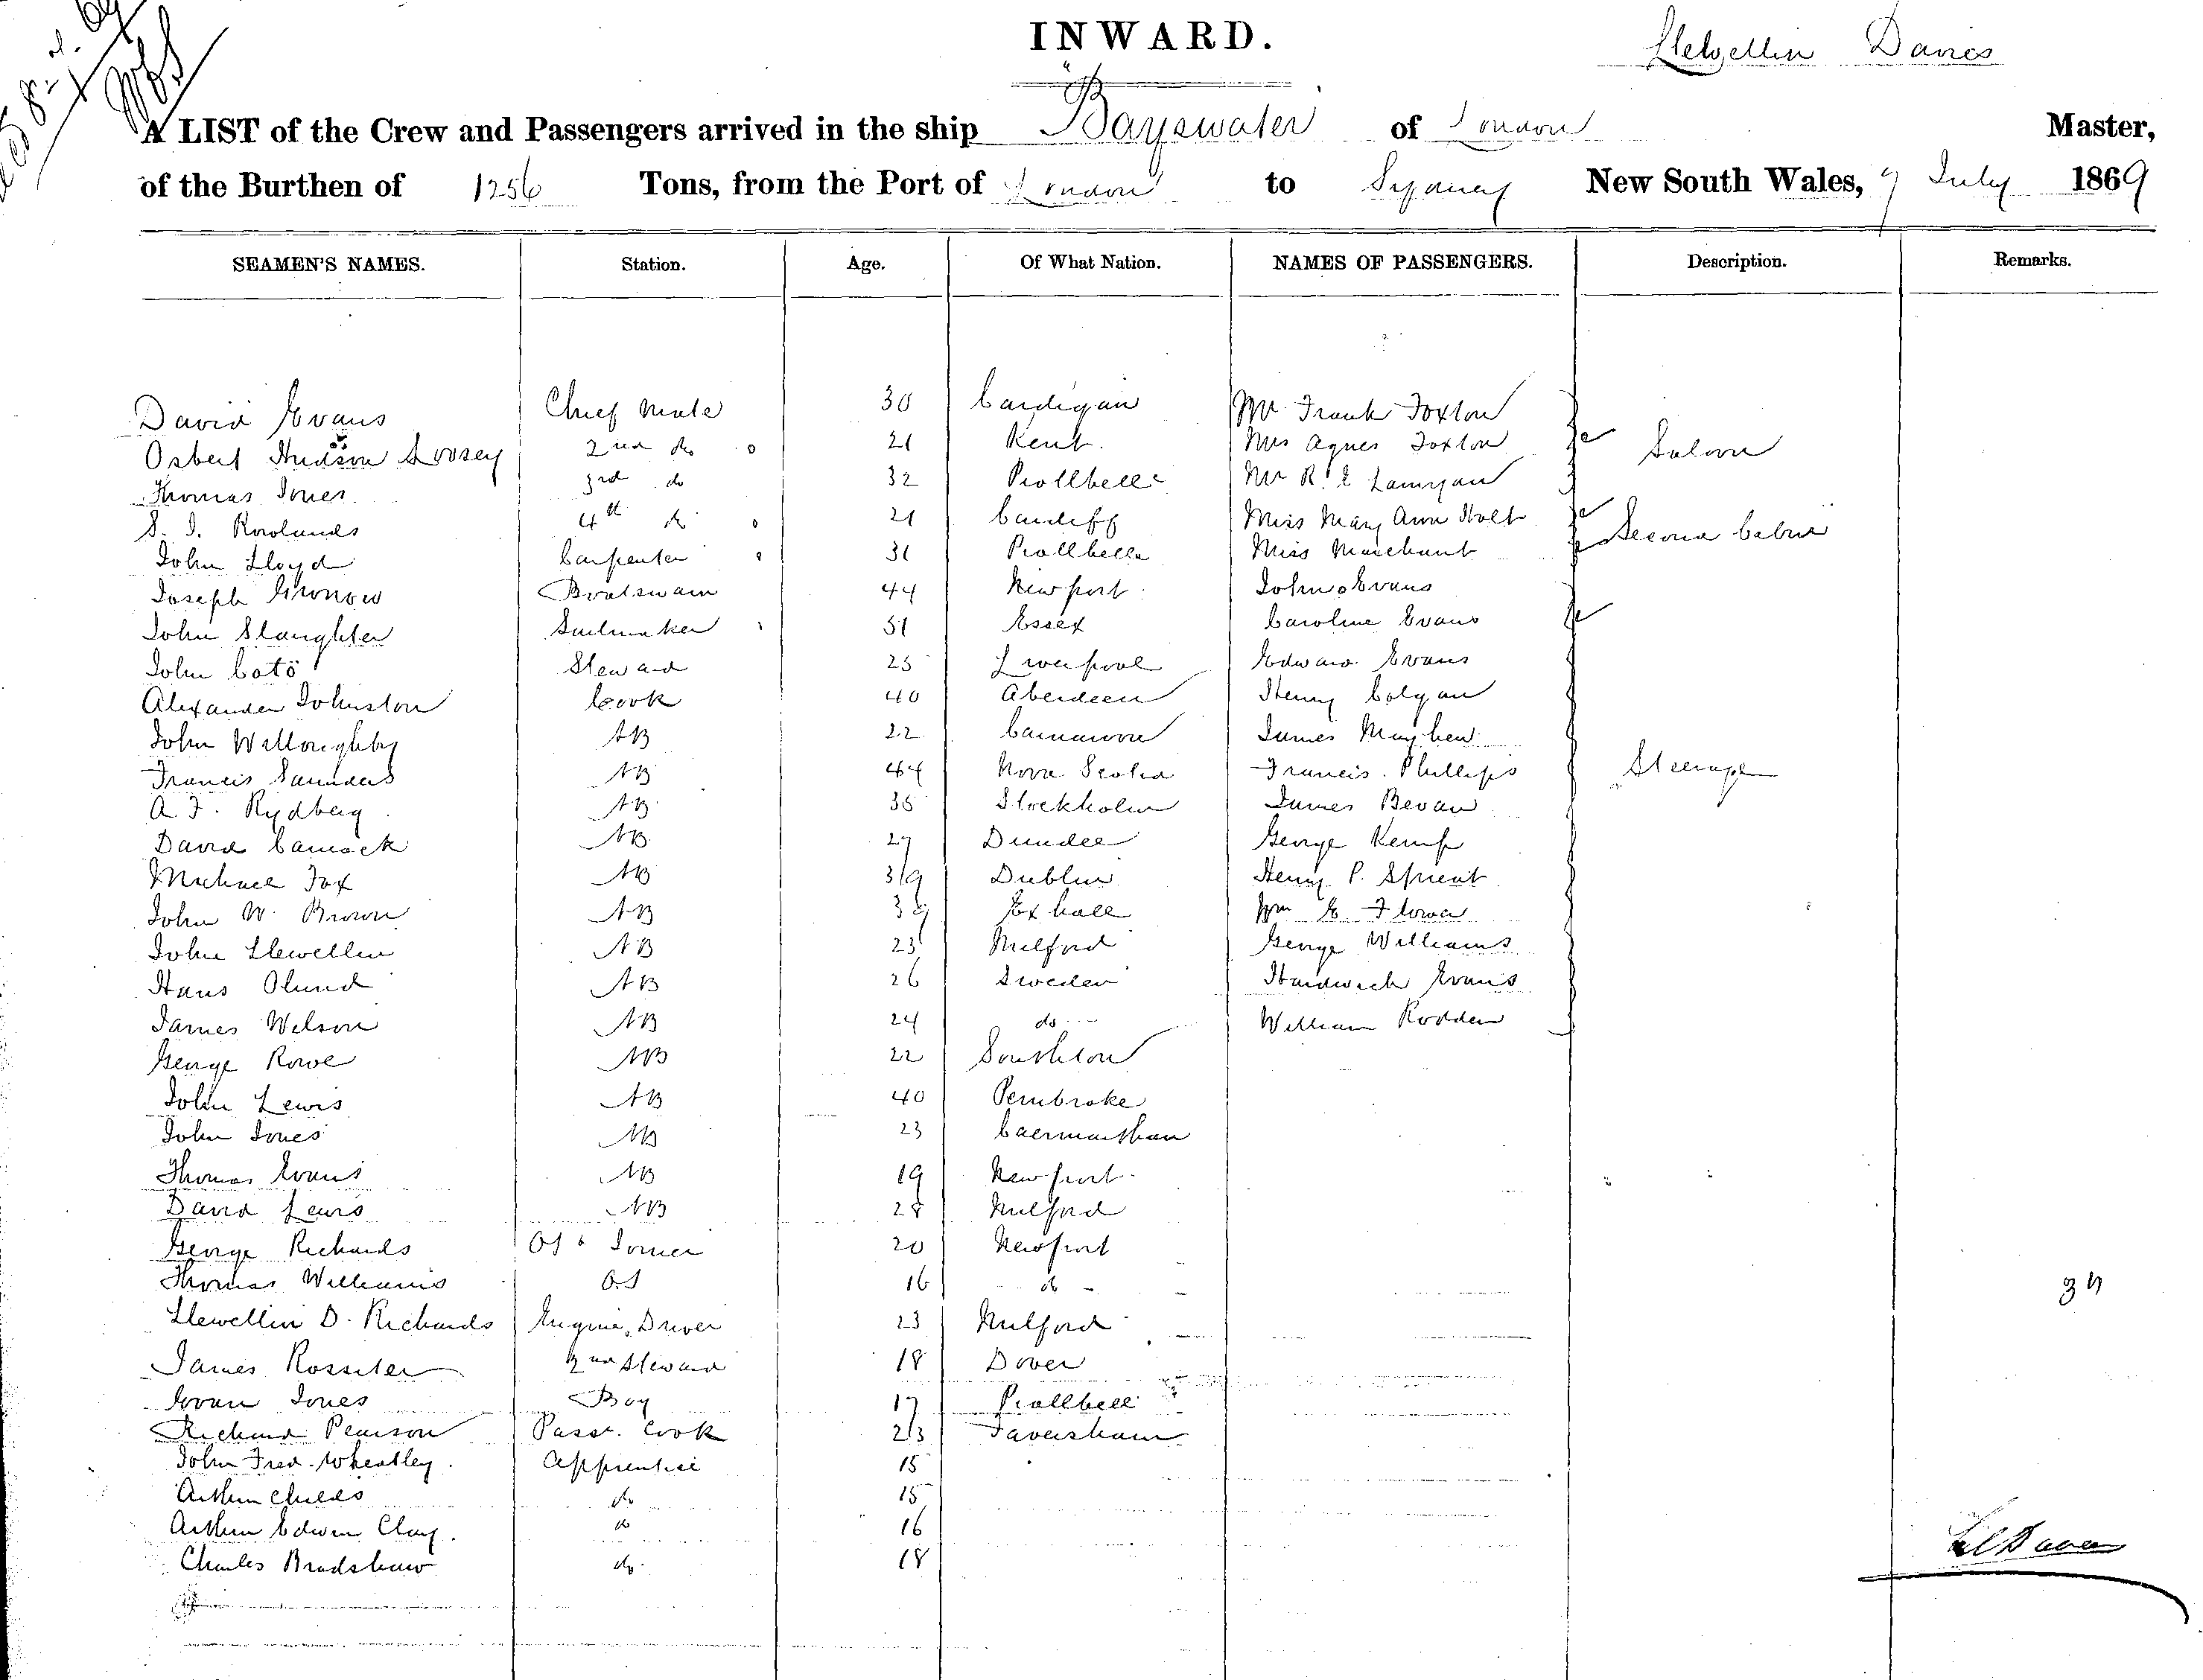 INWARD.
Llewellin Davies
A LIST of the Crew and Passengers arrived in the ship Bayswater of London Master,
of the Burthen of 1256 Tons, from the Port of London to Sydney New South Wales, 9 July 1869
SEAMEN'S NAMES. Station. Age. Of What Nation. NAMES OF PASSENGERS. Description. Remarks.
David Evans Chief Mate 30 Cardigan Mr Frank Foxton
Osbert Hudson 2nd do 21 Kent. Mrs Agnes Foxton Saloon
Thomas Jones 3rd do 32 Mr R.
S. J. Rowlands 4th do 21 Cardiff Miss Mary Ann Holt
John Lloyd Carpenter 31 Miss Marchant Second Cabin
Joseph Gronow Boatswain 44 Newport John Evans
John Slaughter Sailmaker 51 Essex Caroline Evans
John Steward 25 Liverpool Edward Evans
Alexander Johnston Cook 40 Aberdeen Henry Colgan
John Willoughby AB 22 Carnarvon James Mayhew
Francis Saunders AB 44 Nova Scotia Francis Phillips Steerage
A. F. Rydberg AB 35 Stockholm James Bevan
David AB 29 Dundee George Kemp
Michael Fox AB 39 Dublin Henry P. Sprent
John W. Brown AB Wm E Flower
John Llewellin AB 23 Milford George Williams
Hans Olund AB 26 Sweden Hardwick Evans
James Wilson AB 24 do William Rodden
George Rowe AB 22
John Lewis AB 40 Pembroke
John Jones AB 23 Caermarthan
Thomas Evans AB 19 Newport
David Lewis AB 28 Milford
George Richards OS & Joiner 20 Newport
Thomas Williams OS 16 do
37
Llewellin D. Richards Engine Driver 23 Milford
James Rossiter 2nd Steward 18 Dover
Evan Jones Boy 17
Richard Pearson Passr. Cook 23 Faversham
John Fred. Wheatley. Apprentice 15
Arthur Childs do 15
Arthur Edwin Clay. do 16
Charles Bradshaw do. 18